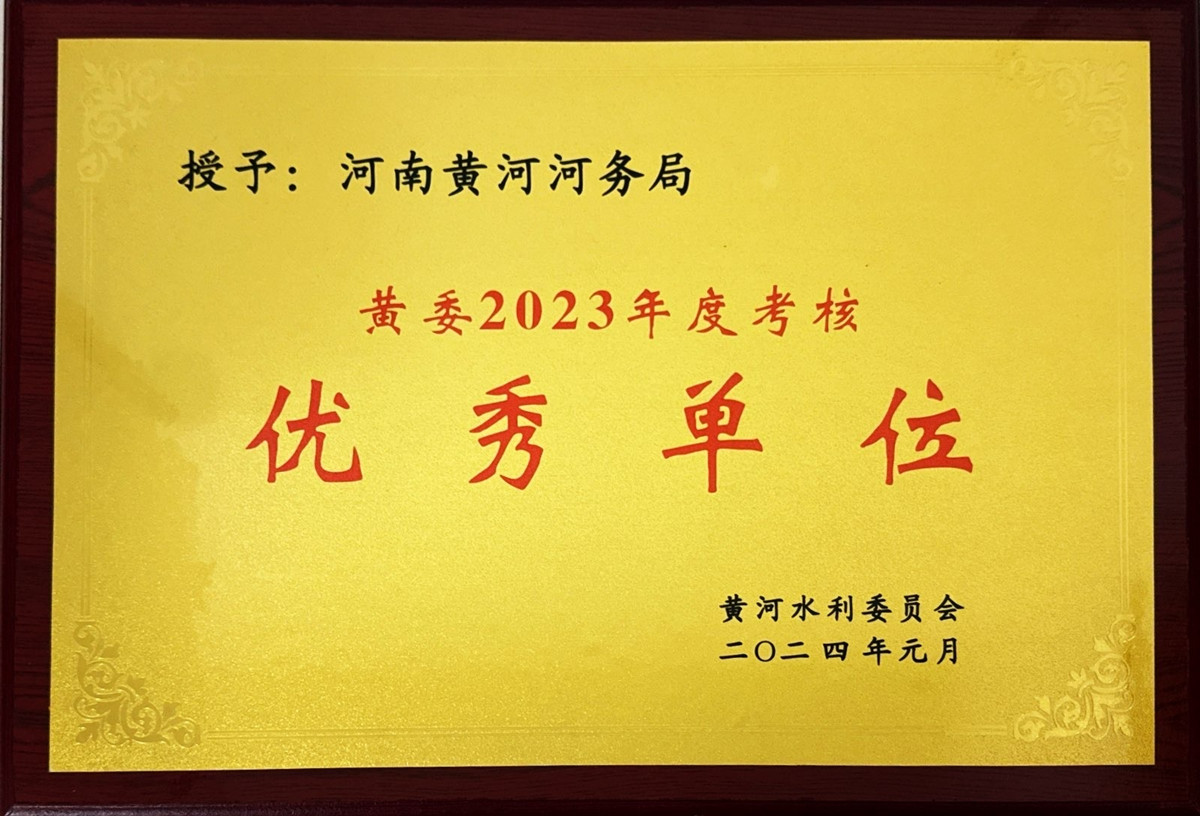 授予：河南黄河河务局
黄委2023年度考核
优秀单位
黄河水利委员会
二〇二四年元月